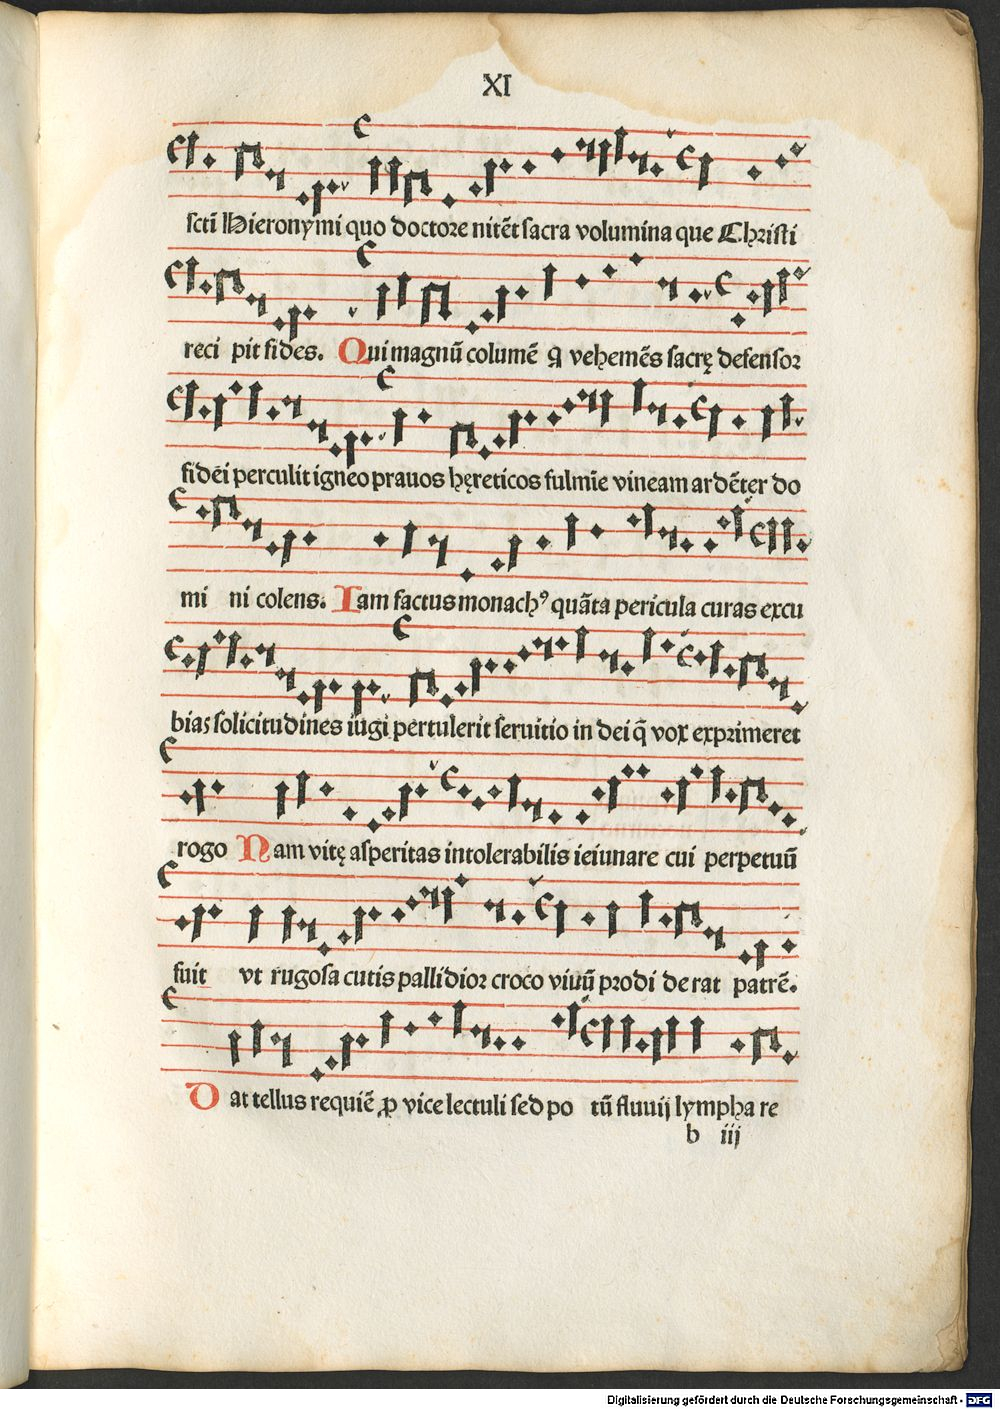 XI
sctī Hieronymi quo doctore nitēt sacra volumina que Christi
reci pit fides. Qui magnū columē q̄ vehemēs sacrę defensor
fidēi perculit igneo prauos hęreticos fulmīe vineam ardēter do
mi ni colens. Iam factus monachꝰ quāta pericula curas excu
bias solicitudines iugi pertulerit seruitio in dei q̄ vox exprimeret
rogo Nam vitę asperitas intolerabilis ieiunare cui perpetuū
fuit vt rugosa cutis pallidior croco viuū prodi de rat patrē.
Dat tellus requiē ꝓ vice lectuli sed po tū fluuij lympha re
b iij
Digitalisierung gefördert durch die Deutsche Forschungsgemeinschaft - DFG